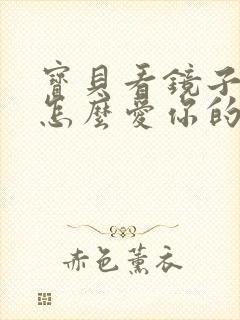 寶貝看鏡子
怎麼愛你的
赤色薰衣